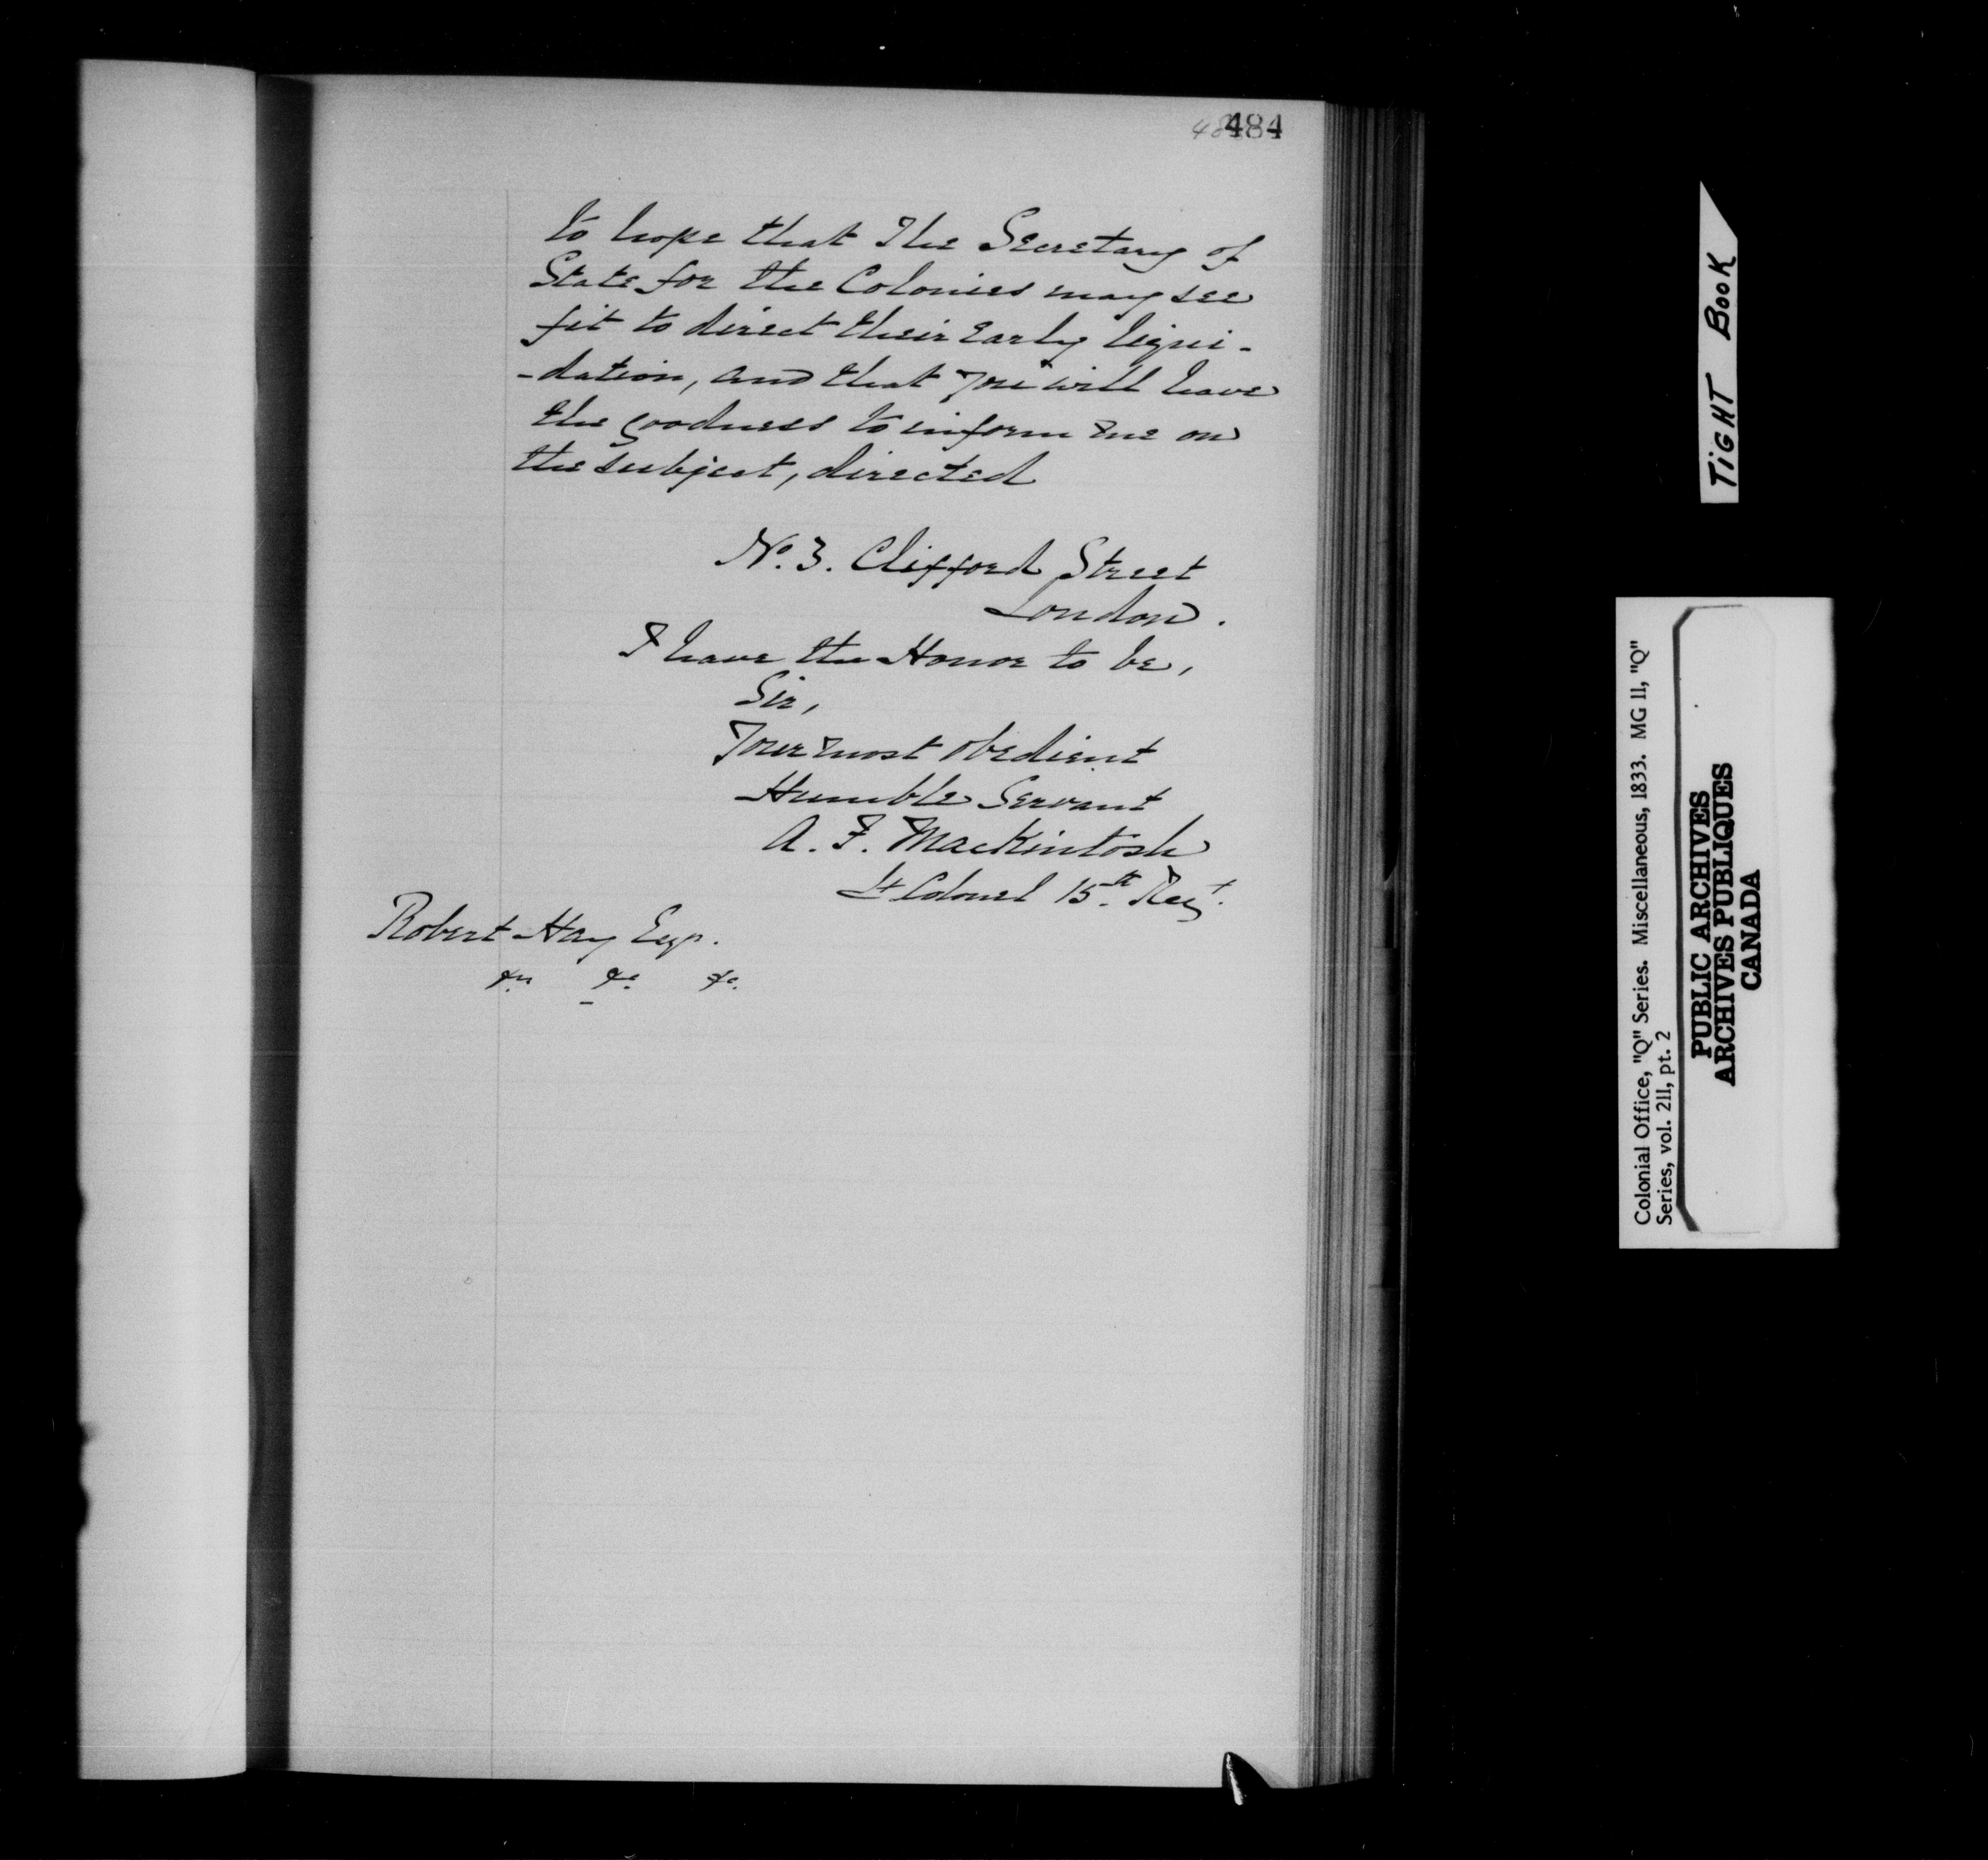 484
to hope that The Secretary of
State for the Colonies may see
fit to direct their early liqui-
-dation, and that you will have
the goodness to inform me on
the subject, directed
No. 3. Clifford Street
London.
I have the Honor to be,
Sir,
Your most obedient
Humble Servant
A. F. MacKintosh
Lt Colonel 15th Regt.
Robert Hay Esqr.
&c &c &c.
TIGHT BOOK
Colonial Office, "Q" Series. Miscellaneous, 1833. MG 11, "Q"
Series, vol. 211, pt. 2
PUBLIC ARCHIVES
ARCHIVES PUBLIQUES
CANADA